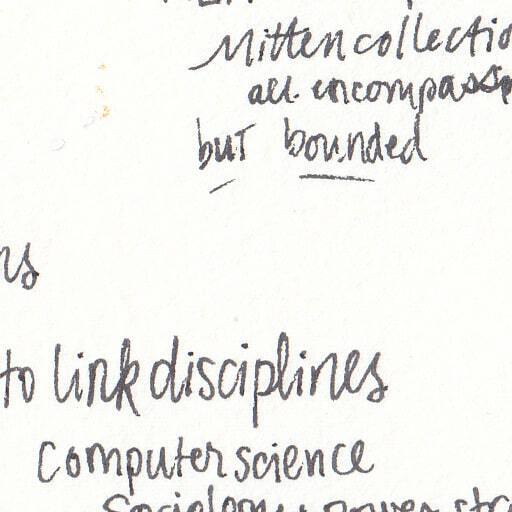 Mitten collectio
all encompass
but bounded
ns
to link disciplines
Computer science
Sociology power str